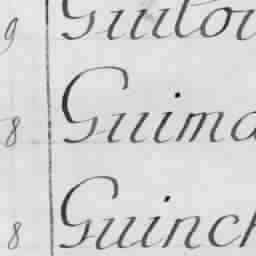 9 Guilou
8 Guima
8 Guinch